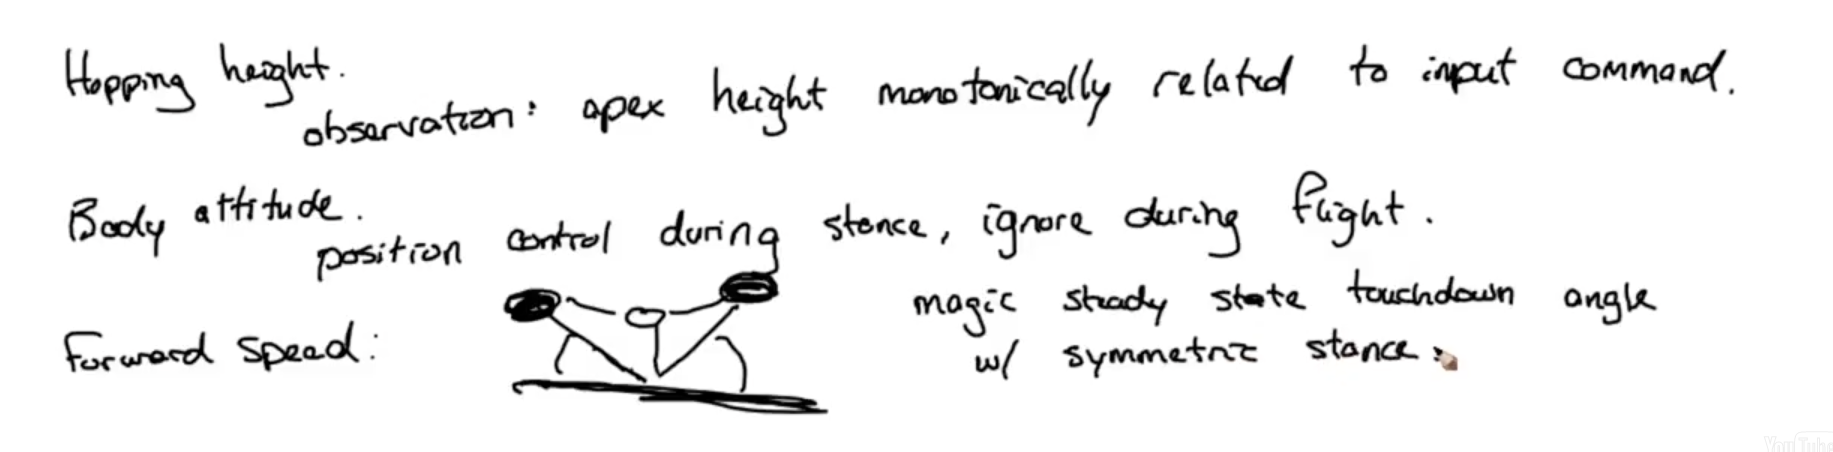 Hopping height.
observation: apex height monotonically related to input command.
Body attitude.
position control during stance, ignore during flight.
Forward speed:
magic steady state touchdown angle
w/ symmetric stance.
YouTube